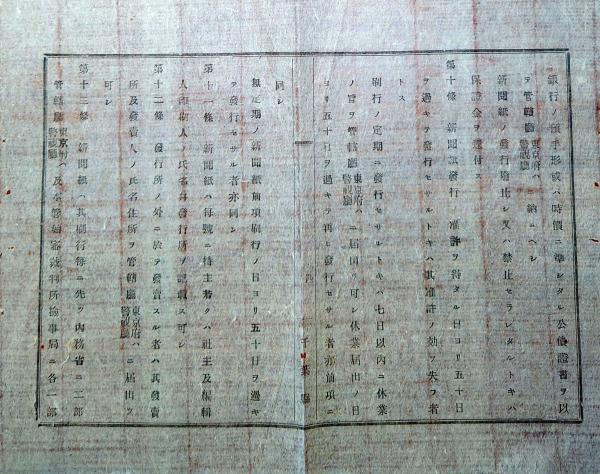 銀行ノ預手形或ハ時價ニ準シタル公債證書ヲ以
ヲ管轄廳 東京府ハ警視廳 ニ納ムヘシ
新聞紙ノ發行廢止シ又ハ禁止セラレタルトキハ
保證金ヲ還付ス
第十條 新聞紙發行ノ准許ヲ得タル日ヨリ五十日
ヲ過キテ發行セサルトキハ其准許ノ効ヲ失フ者
トス
刷行ノ定期ニ發行セサルトキハ七日以内ニ休業
ノ旨ヲ管轄廳 東京府ハ警視廳 ニ届出可シ休業届出ノ日
ヨリ五十日ヲ過キテ再ヒ發行セサル者亦前項ニ
四
千葉縣
同シ
無定期ノ新聞紙前項刷行ノ日ヨリ五十日ヲ過キ
テ發行セサル者亦同シ
第十一條 新聞紙ハ毎號ニ持主若クハ社主及編輯
人印刷人ノ氏名及發行所ヲ記載ス可シ
第十二條 發行所ノ外ニ於テ發賣スル者ハ其發賣
所及發賣人ノ氏名住所ヲ管轄廳 東京府ハ警視廳 ニ届出ス
可シ
第十三條 新聞紙ハ其刷行毎ニ先ツ内務省ニ二部
管轄廳 東京府ハ警視廳 及本管始審裁判所檢事局ニ各一部